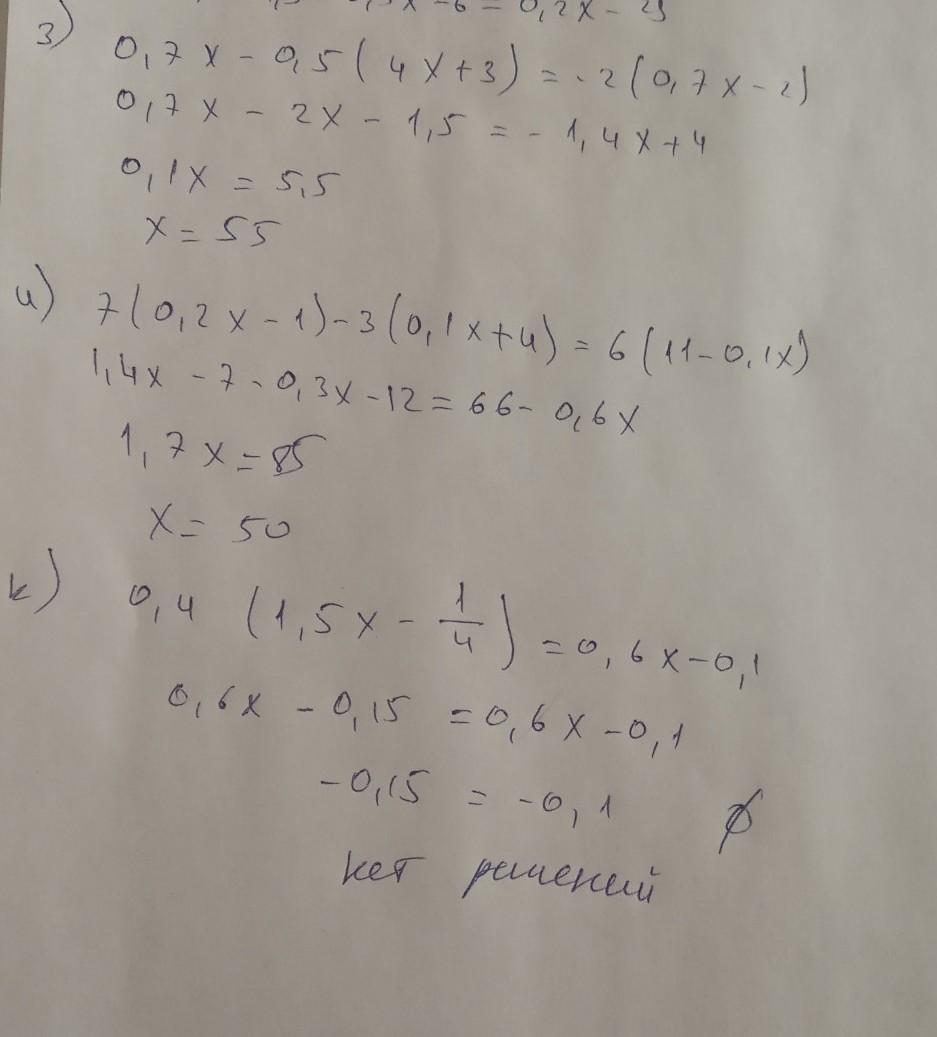 -6 = 0,2x - 
з) 0,7x - 0,5(4x+3) = -2(0,7x-2)
0,7x - 2x - 1,5 = -1,4x+4
0,1x = 5,5
x = 55
и) 7(0,2x-1)-3(0,1x+4) = 6(11-0,1x)
1,4x - 7 - 0,3x - 12 = 66 - 0,6x
1,7x = 85
x = 50
к) 0,4 (1,5x - 1/4) = 0,6x-0,1
0,6x - 0,15 = 0,6x - 0,1
-0,15 = -0,1 ∅
нет решений